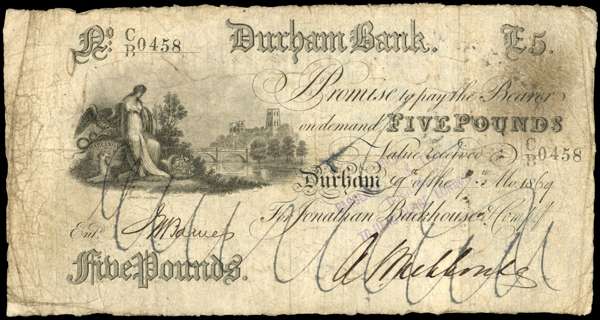 No: C/B 0458 Durham Bank. £5.
Promise to pay the Bearer
on demand FIVE POUNDS
Value received C/B 0458
Durham 9th of the 7th Mo. 1869
For Jonathan Backhouse & Compy
Entd
Five Pounds.